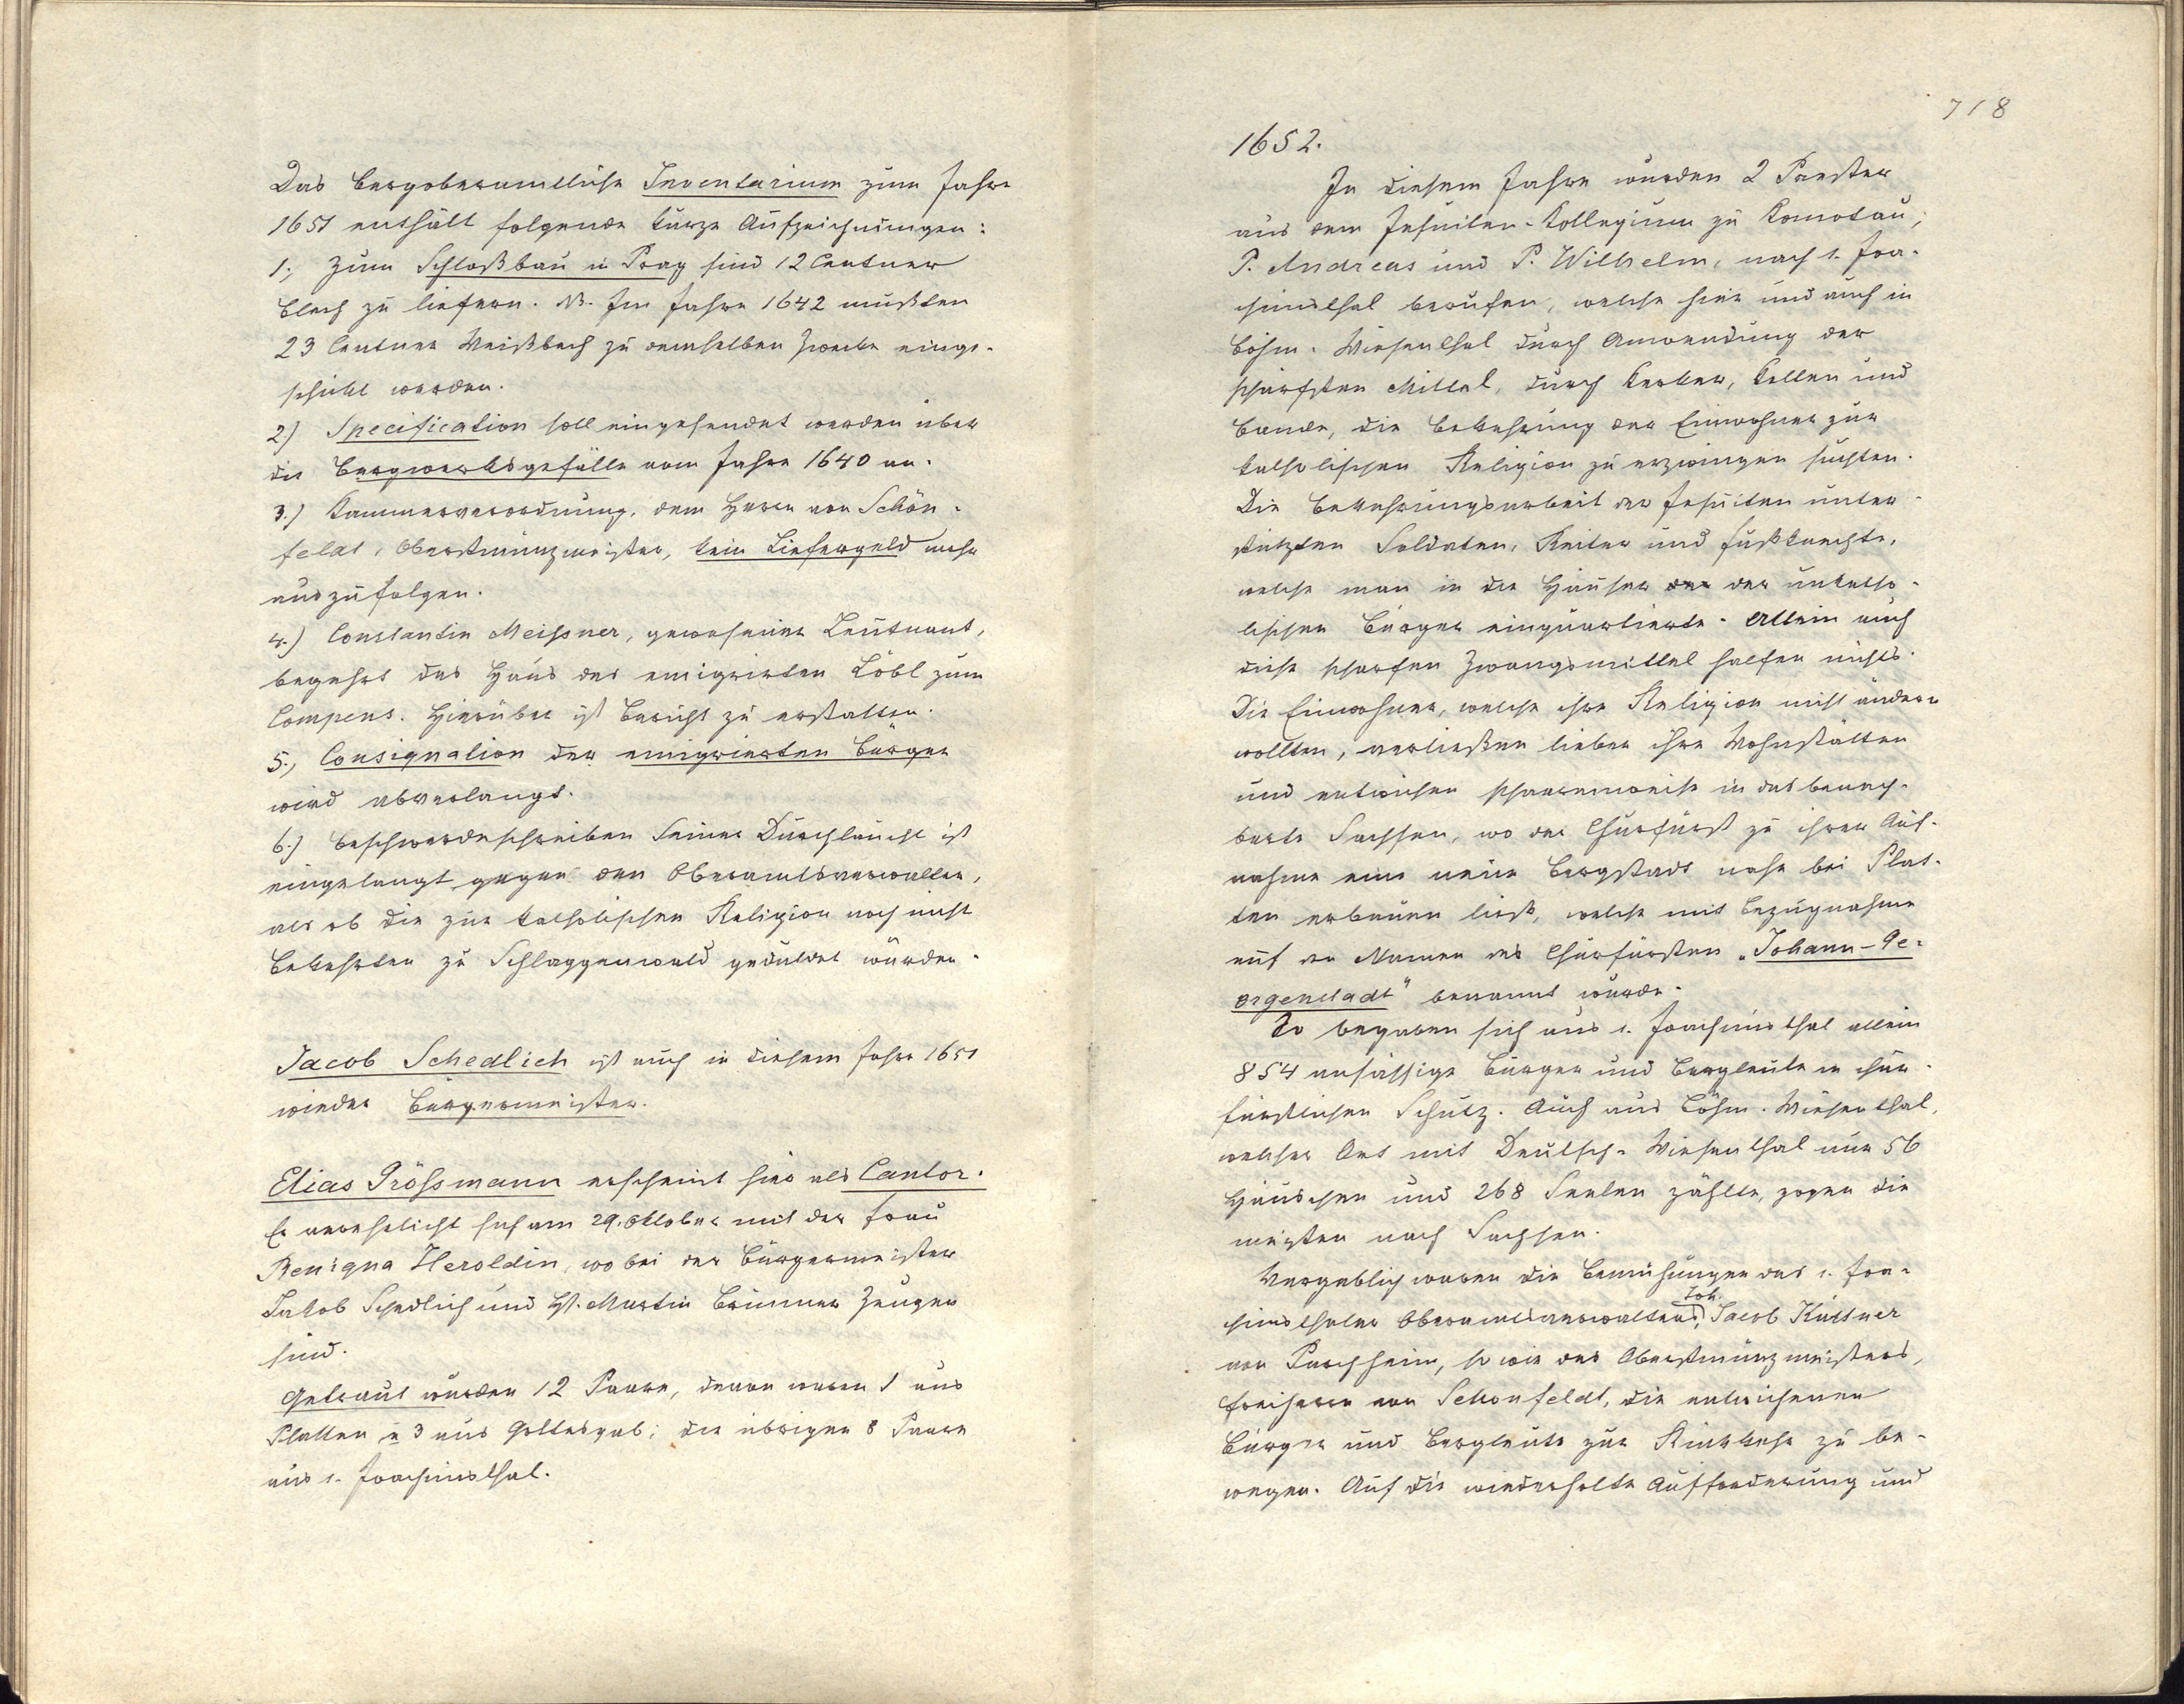 Das bergoberamtliche Inventarium zum Jahre
1651 enthält folgende kurze Aufzeichnungen:
1., Zum Schloßbau in Prag sind 12 Centner
Blech zu liefern. NB. Im Jahre 1642 mußten
23 Centner Weißblech zu demselben Zwecke einge-
schickt werden.
2.) Specification soll eingesendet werden über
die Bergwerksgefälle vom Jahre 1640 an.
3.) Kammerverordnung, dem Herrn von Schön-
feldt, Oberstmünzmeister, kein Liefergeld mehr
auszufolgen.
4.) Constantin Meissner, gewesener Leutnant,
begehrt das Haus des emigrirten Löbl zum
Compens. Hierüber ist Bericht zu erstatten.
5., Consignation der emigrierten Bürger
wird abverlangt.
6.) Beschwerdeschreiben Seiner Durchlaucht ist
eingelangt gegen den Oberamtsverwalter,
als ob die zur katholischen Religion noch nicht
Bekehrten zu Schlaggenwald geduldet würden.
Jacob Schedlich ist auch in diesem Jahre 1651
wieder Bürgermeister.
Elias Grössmann erscheint hier als Cantor.
Er verehelicht sich am 29. Oktober mit der Frau
Benigna Heroldin, wobei der Bürgermeister
Jakob Schedlich und H. Martin Brunner Zeugen
sind.
Getraut wurden 12 Paare, davon waren 1 aus
Platten u 3 aus Gottesgab; die übrigen 8 Paare
aus s. Joachimsthal.
718
1652.
In diesem Jahre wurden 2 Priester
aus dem Jesuiten-Kollegium zu Komotau,
P. Andreas und P. Wilhelm, nach s. Joa-
chimsthal berufen, welche hier und auch in
böhm. Wiesenthal durch Anwendung der
schärfsten Mittel, durch Kerker, Ketten und
Bande, die Bekehrung der Einwohner zur
katholischen Religion zu erzwingen suchten.
Die Bekehrungsarbeit der Jesuiten unter-
stützten Soldaten, Reiter und Fußknechte,
welche man in die Häuser der der unkatho-
lischen Bürger einquartierte. Allein auch
diese scharfen Zwangsmittel halfen nichts.
Die Einwohner, welche ihre Religion nicht ändern
wollten, verließen lieber ihre Wohnstätten
und entwichen schaarenweise in das benach-
barte Sachsen, wo der Churfürst zu ihrer Auf-
nahme eine neue Bergstadt nahe bei Plat-
ten erbauen ließ, welche mit Bezugnahme
auf den Namen des Churfürsten „Johann-Ge-
orgenstadt" benannt wurde.
So begaben sich aus s. Joachimsthal allein
854 ansässige Bürger und Bergleute in chur-
fürstlichen Schutz. Auch aus Böhm. Wiesenthal,
welcher Ort mit Deutsch-Wiesenthal nur 56
Häuschen und 268 Seelen zählte, zogen die
meisten nach Sachsen.
Vergeblich waren die Bemühungen des s. Joa-
chimsthaler Oberamtsverwalters, Joh. Jacob Kittner
von Parchheim, so wie des Oberstmünzmeisters,
Freiherrn von Schönfeldt, die entwichenen
Bürger und Bergleute zur Rückkehr zu be-
wegen. Auf die wiederholte Aufforderung und